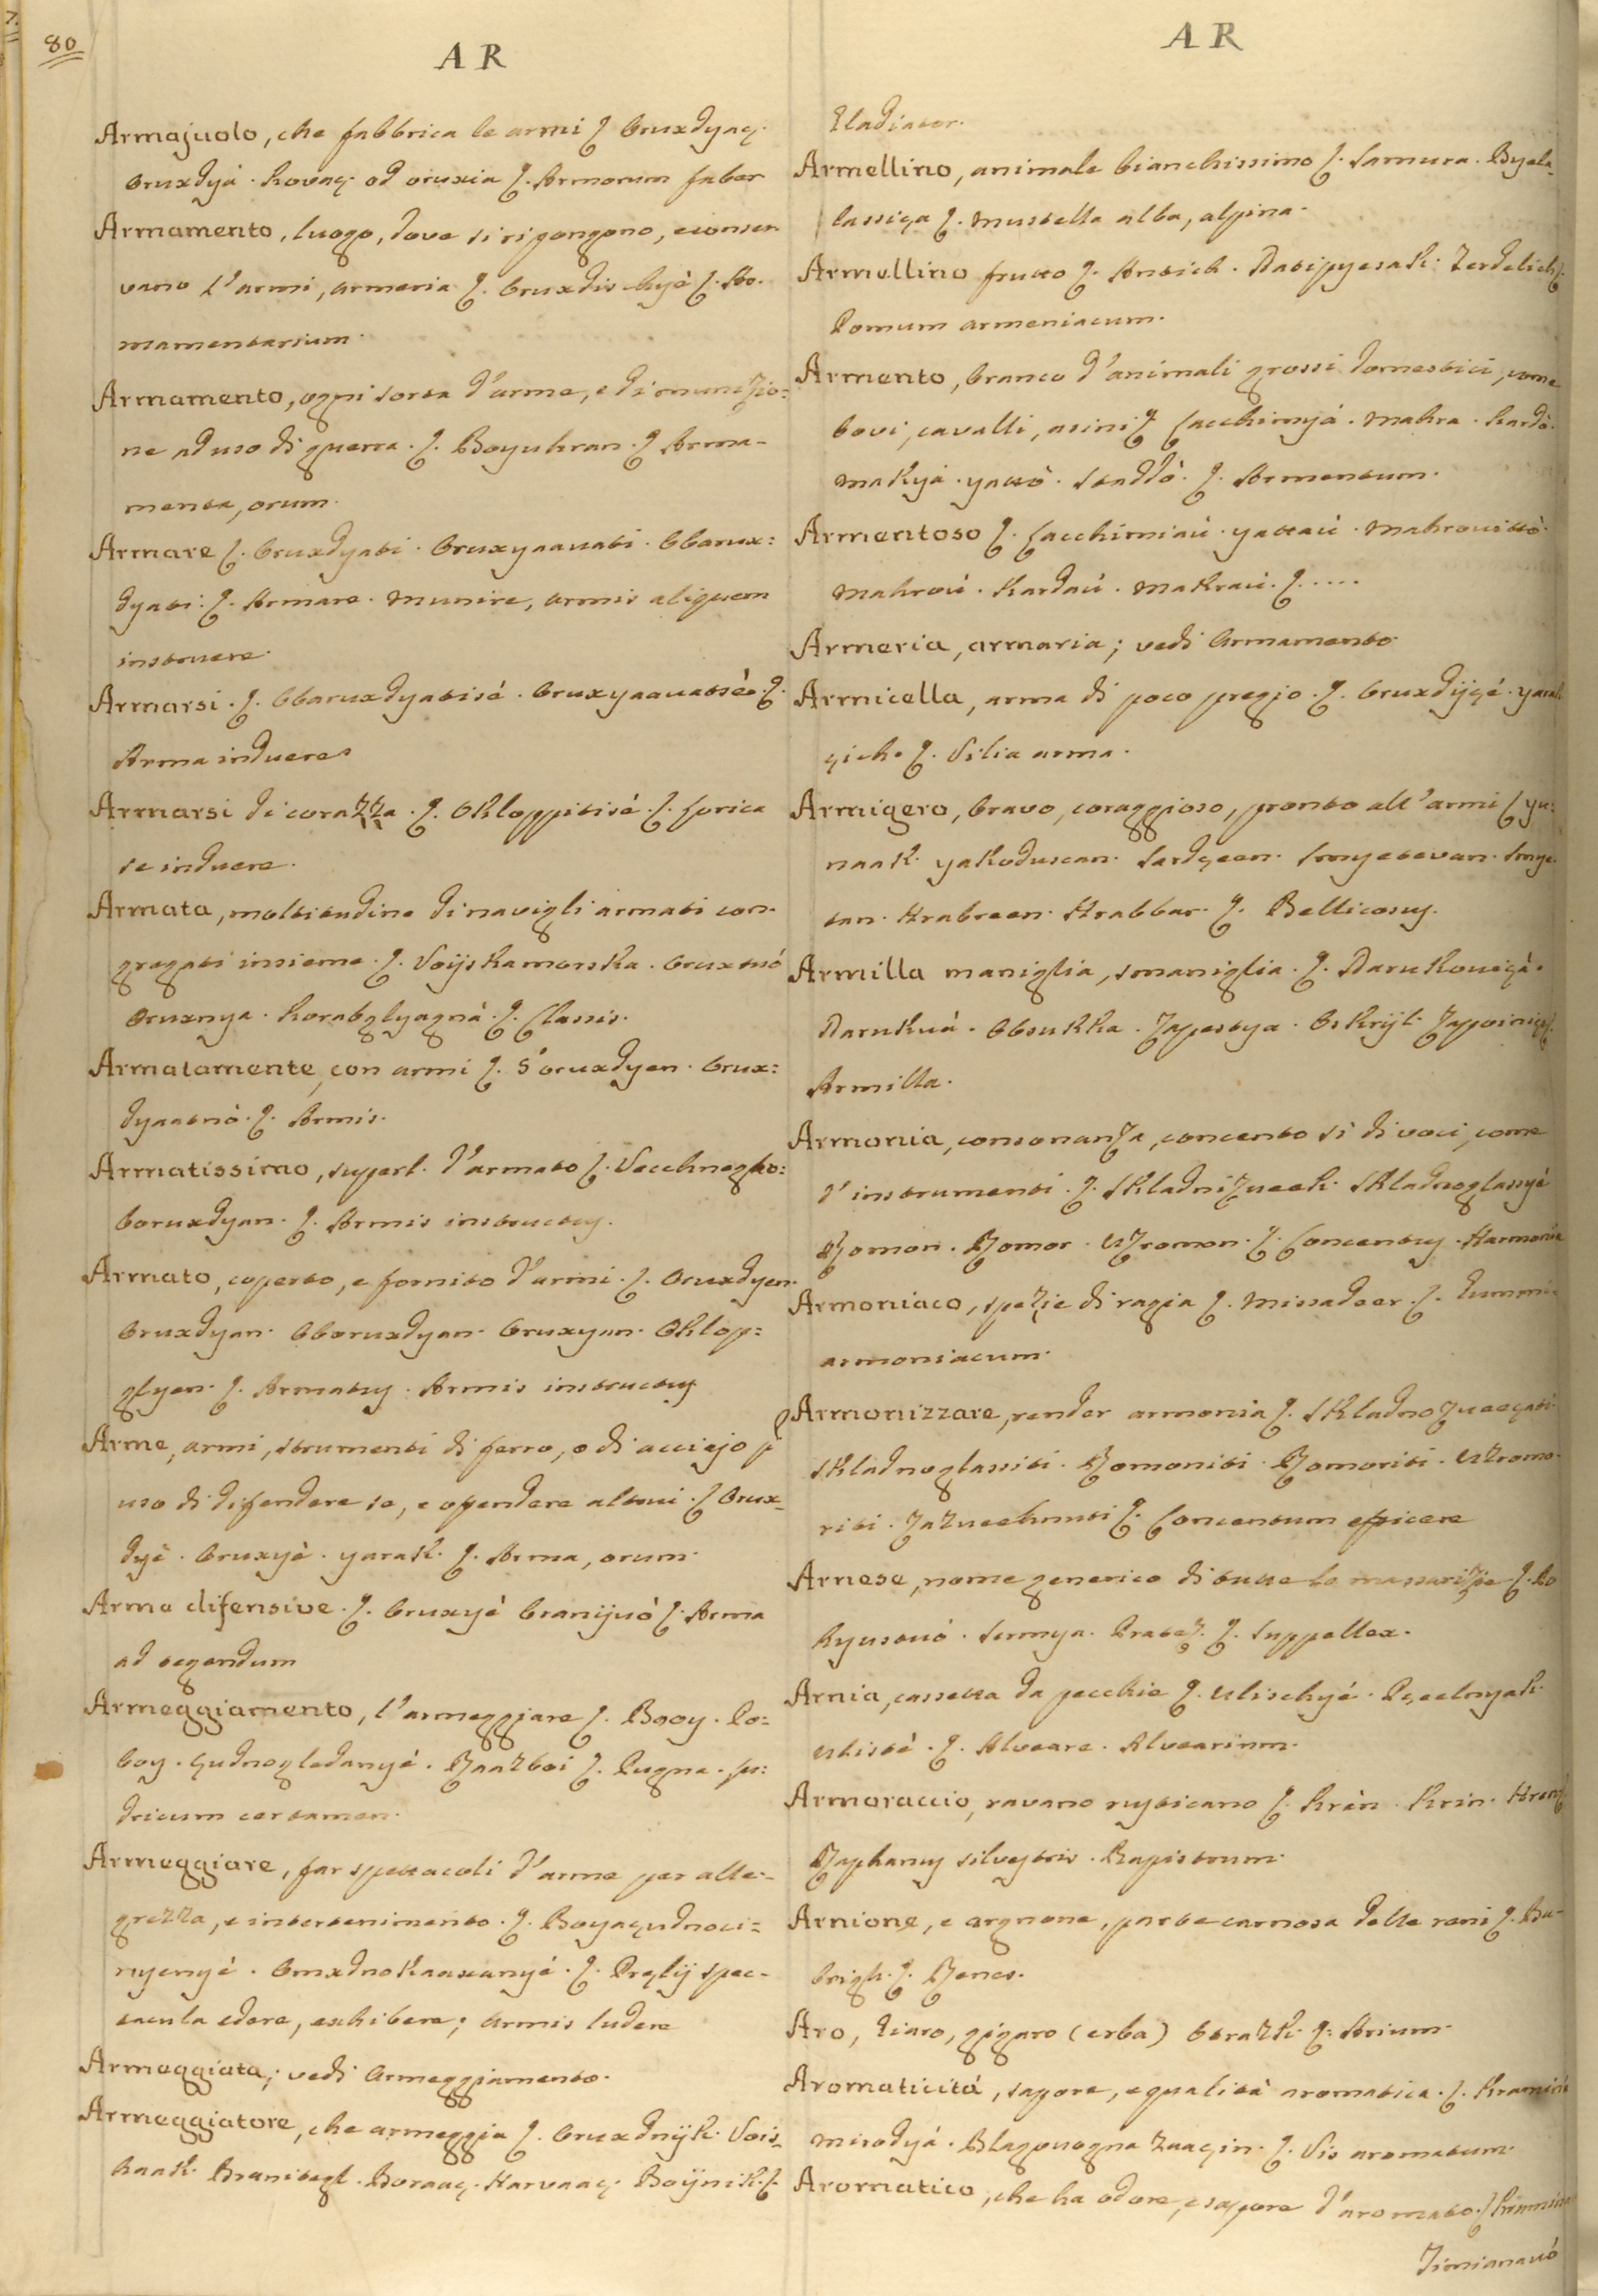 80
A R
Armajuolo, che fabbrica le armi ʃ. Oruxdyaç.
Oruxdyá. Kovaç od oruxia ʃ. Armorum faber
Armamento, luogo, dove si ripongono, e conser
vano l'armi, armeria ʃ. Oruxdis kyé ʃ. Ar.
mamentarium.
Armamento, ogni sorta d'arme, e di munizio=
ne ad uso di guerra. ʃ. Boyukran. ʃ. Arma-
menta, orum.
Armare ʃ. Oruxdyati. Oruxyaavati. Obarux=
dyati. ʃ. Armare. Munire, armis aliquem
instruere.
Armarsi. ʃ. Obaruxdyatisé. Oruxyaavatsé. ʃ.
Arma induere
Armarsi di corazza. ʃ. Okloppitisé. ʃ. Lorica
se induere.
Armata, moltitudine di navigli armati con
gregati insieme. ʃ. Voijska morska. Oruxnó
Oruxnya. Korabglyagná. ʃ. Classis.
Armatamente, con armi ʃ. S'oruxdyen. Orux=
dyaatnó. ʃ. Armis.
Armatissimo, superl. d'armato ʃ. Vecchnegko=
boruxdyan. ʃ. Armis instructus.
Armato, coperto, e fornito d'armi. ʃ. Oruxdyen.
Oruxdyan. Oboruxdyan. Oruxyan. Oklop=
glyen. ʃ. Armatus. Armis instructus
Arme, armi, strumenti di ferro, o di acciajo p
uso di difendere se, e offendere altrui. ʃ. Orux-
dyé. Oruxyé. yarak. ʃ. Arma, orum.
Arme difensive. ʃ. Oruxyé branijvó ʃ. Arma
ad tegendum
Armeggiamento, l'armeggiare ʃ. Booy. Po=
boy. çudnogledanyé. Raazboi ʃ. Pugna. lu:
dricum certamen.
Armeggiare, far spettacoli d'arme per alle-
grezza, e intertenimento. ʃ. Boyaçudnoci=
nyenyé. Omxdnokaaxanyé. ʃ. Preglij spec-
tacula edere, exhibere; armis ludere
Armeggiata; vedi Armeggiamento.
Armeggiatore, che armeggia ʃ. Oruxdnijk. Vois-
kaak. Branitegl. Boraaç. Harvaaç. Boijnik. ʃ.
A R
Gladiator.
Armellino, animale bianchissimo ʃ. Samura. Byela-
lassiça ʃ. Mustella alba, alpina.
Armellino frutto ʃ. Antich. Natipyesak. Zerdelich ʃ.
Pomum armeniacum.
Armento, branco d'animali grossi domestici, come
bovi, cavalli, asini ʃ. Cacchimyá. Mahra. Kardó.
Makyá. yattó. Staddó. ʃ. Armentum.
Armentoso ʃ. Cacchimiaú. yattaú. Mahrovittó.
Mahroú. Kardaú. Makraú. ʃ. ....
Armeria, armaria; vedi Armamento
Armicella, arma di poco pregio. ʃ. Oruxdijçé. yarak
çich. ʃ. Vilia arma.
Armigero, bravo, coraggioso, pronto all'armi ʃ. yu:
naak. yakoduscan. Sardçeen. Smyetevan. Smye.
tan. Hrabreen. Hrabbar. ʃ. Bellicosus.
Armilla maniglia, smaniglia. ʃ. Narukoviçá.
Narukvá. Obsukka. Zapestya. Oskrijl. Zapoiniça ʃ.
Armilla.
Armonia, consonanza, concento sì di voci, come
d'instrumenti. ʃ. Skladnizveek. Skladnoglassyé
Romon. Romor. Uzromon. ʃ. Concentus. Harmonia
Armoniaco, spezie di ragia ʃ. Missadeer. ʃ. Gummi
armoniacum.
Armonizzare, render armonia ʃ. Skladnozveeçati.
Skladnoglassiti. Romoniti. Romoriti. Uzromo.
riti. Zazveeknuti ʃ. Concentum efficere
Arnese, nome generico di tutte le massarizie ʃ. Po
kyustvó. Sermya. Pratex. ʃ. Suppellex.
Arnia, cassetta da pecchie ʃ. Ulischyé. Pçeelnyak.
Ulisté. ʃ. Alveare. Alvearium.
Armoraccio, ravano rusticano ʃ. Krèn. Krin. Hren ʃ.
Raphanus silvestris. Rapistrum.
Arnione, e argnone, parte carnosa delle reni ʃ. Bu-
brigh. ʃ. Renes.
Aro, Giaro, gigaro (erba) Obrazk. ʃ. Arium.
Aromaticitá, sapore, e qualitá aromatica. ʃ.
mirodyá. Blagovogna zaaçin. ʃ. Vis aromatum.
Aromatico, che ha odore, e sapore d'aromato. ʃ.
Timianavó